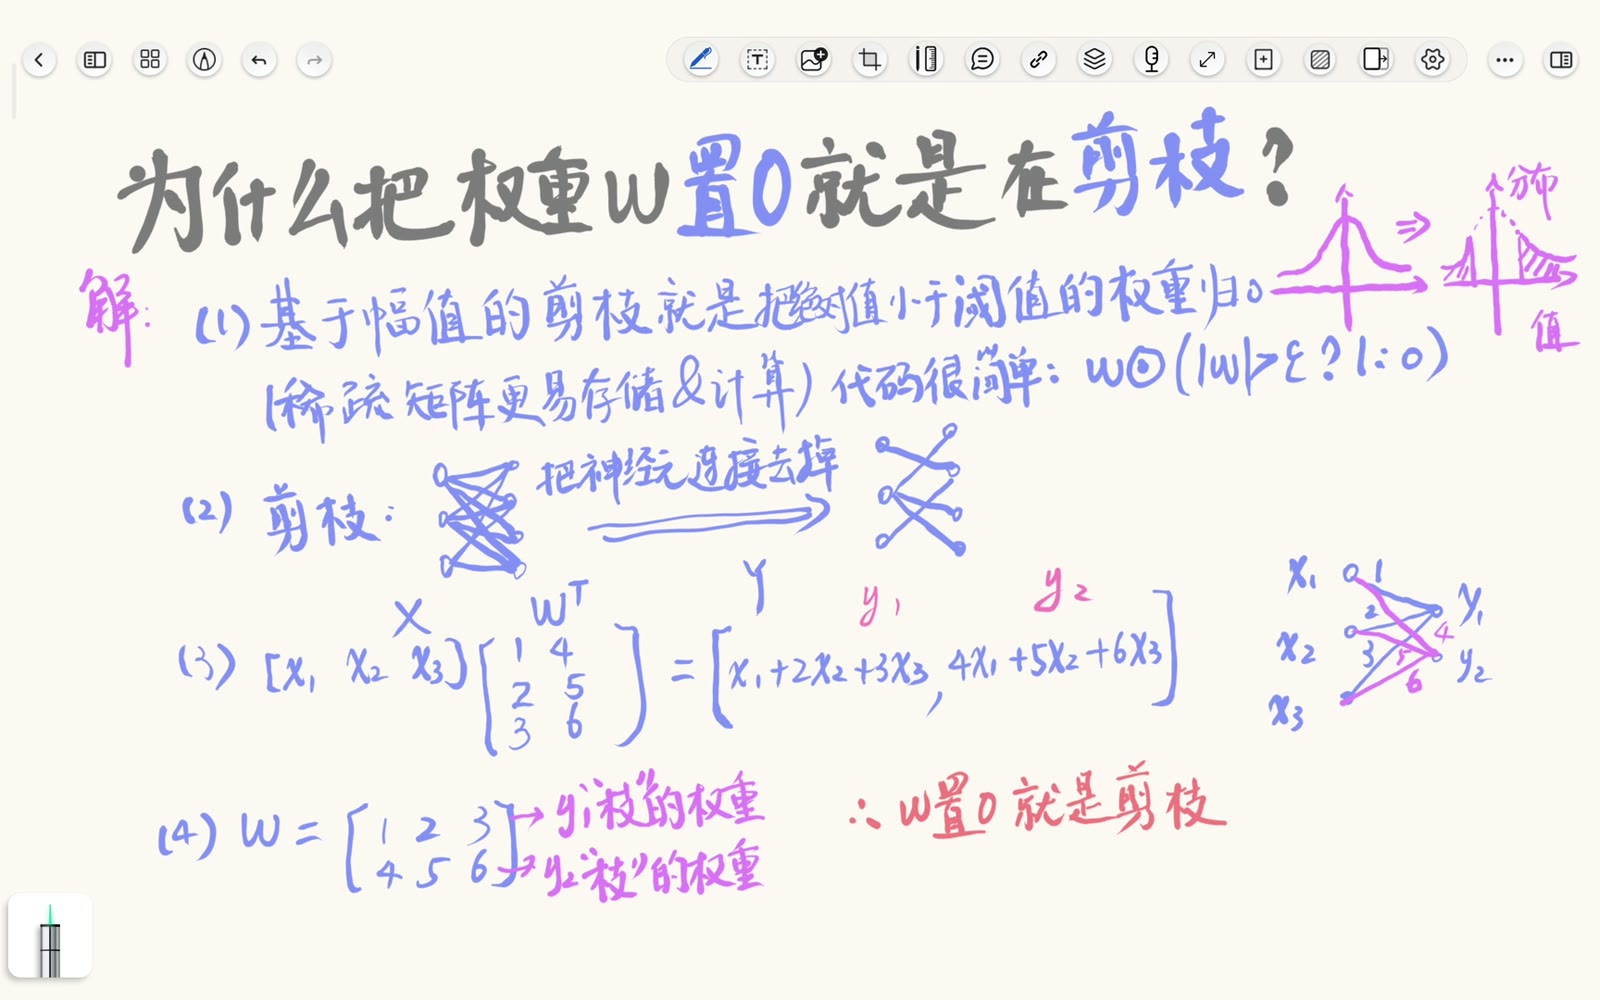 为什么把权重W置0就是在剪枝?
分布
值
解:
(1) 基于幅值的剪枝就是把绝对值小于阈值的权重归0
(稀疏矩阵更易存储&计算) 代码很简单: W⊙(|W|>ε?1:0)
(2) 剪枝: 把神经元连接去掉
X Wᵀ Y y₁ y₂
(3) [x₁ x₂ x₃] [1 4 = [x₁+2x₂+3x₃, 4x₁+5x₂+6x₃]
2 5
3 6]
x₁ 1 y₁
2 4
x₂ 3 5 y₂
6
x₃
(4) W = [1 2 3 → y₁"枝"的权重
4 5 6] → y₂"枝"的权重
∴ W置0就是剪枝